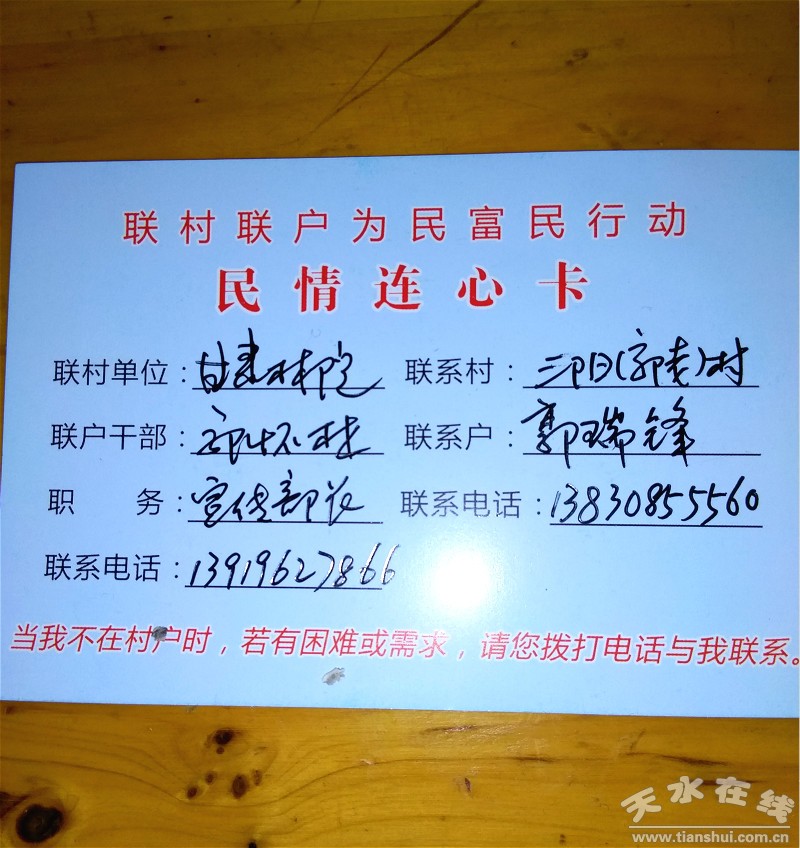 联村联户为民富民行动
民情连心卡
联村单位：甘肃林院 联系村：郭老村
联户干部： 联系户：郭瑞锋
职 务：宣传部长 联系电话：13830855560
联系电话：13919627866
当我不在村户时，若有困难或需求，请您拨打电话与我联系。
天水在线
www.tianshui.com.cn